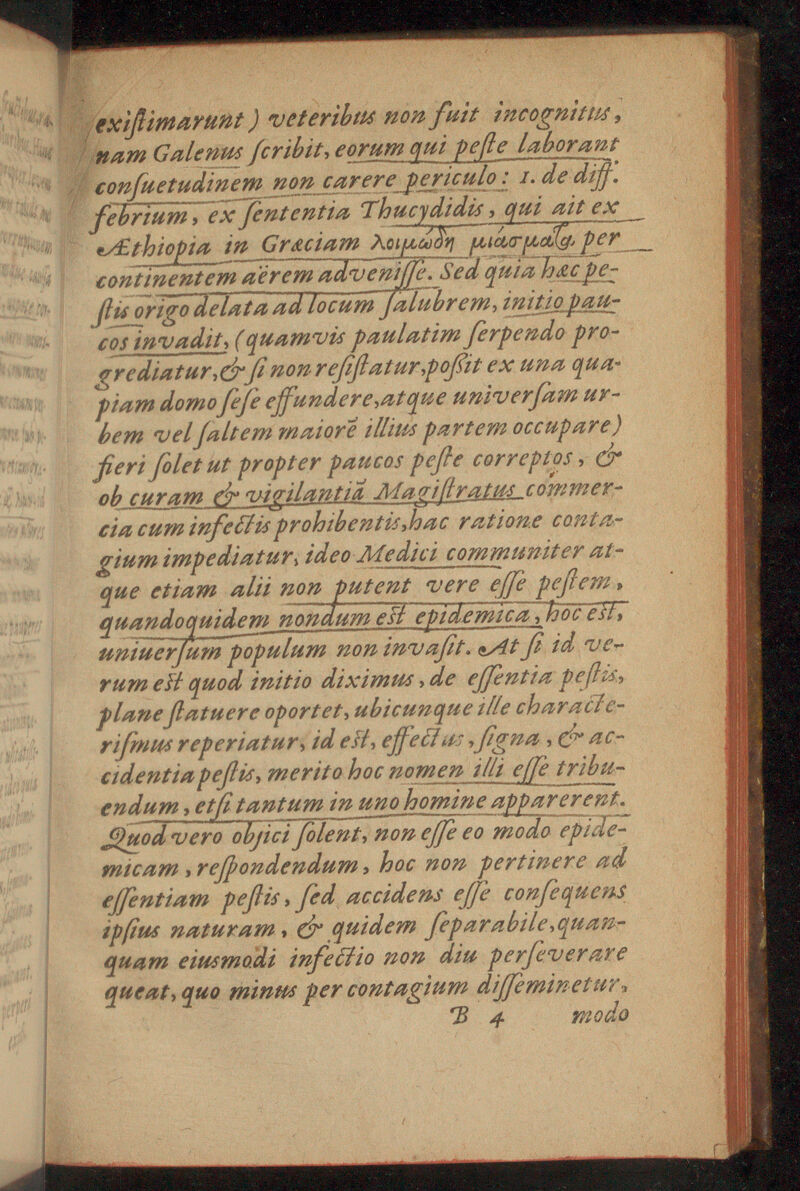 exiſtimarunt) veteribus non fuit incognitus,
nam Galenus ſcribit, eorum qui peſte laborant
conſuetudinem non carere periculo: 1. de diff.
febrium, ex ſententia Thucydidis, qui ait ex
Æthiopia in Græciam λοιμώδη μιάσματα per
continentem aërem adveniſſe. Sed quia hæc pe-
ſtis origo delata ad locum ſalubrem, initio pau-
cos invadit, (quamvis paulatim ſerpendo pro-
grediatur, & ſi non reſiſtatur, poſsit ex una qua-
piam domo ſeſe effundere, atque univerſam ur-
bem vel ſaltem maiorē illius partem occupare)
fieri ſolet ut propter paucos peſte correptos, &
ob curam & vigilantiā Magiſtratus commer-
cia cum infectis prohibentis, hac ratione conta-
gium impediatur, ideo Medici communiter at-
que etiam alii non putent vere eſſe peſtem,
quandoquidem nondum est epidemica, hoc est,
uniuerſum populum non invaſit. At ſi id ve-
rum est quod initio diximus, de eſſentia peſtis,
plane ſtatuere oportet, ubicunque ille characte-
riſmus reperiatur, id est, effectus, ſigna, & ac-
cidentia peſtis, merito hoc nomen illi eſſe tribu-
endum, etſi tantum in uno homine apparerent.
Quod vero objici ſolent, non eſſe eo modo epide-
micam, reſpondendum, hoc non pertinere ad
eſſentiam peſtis, ſed accidens eſſe conſequens
ipſius naturam, & quidem ſeparabile, quan-
quam eiusmodi infectio non diu perſeverare
queat, quo minus per contagium diſſeminetur,
B 4 modo